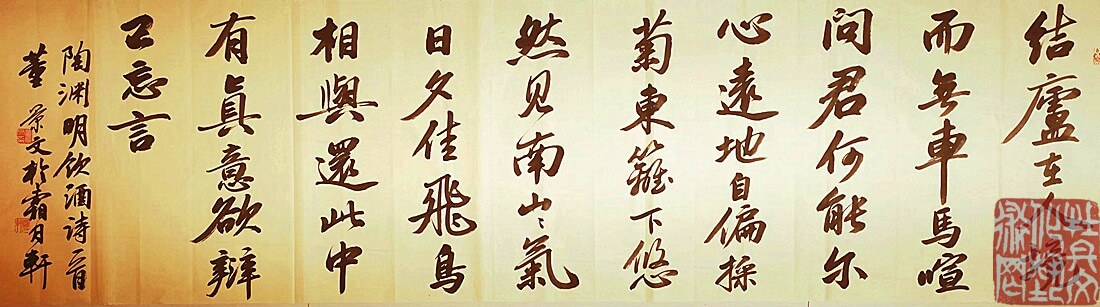 结廬在人境
而無車馬喧
问君何能尔
心遠地自偏採
菊東籬下悠
然见南山〻氣
日夕佳飛鳥
相與還此中
有真意欲辯
已忘言
陶渊明飲酒诗一首
董景文於霜月軒